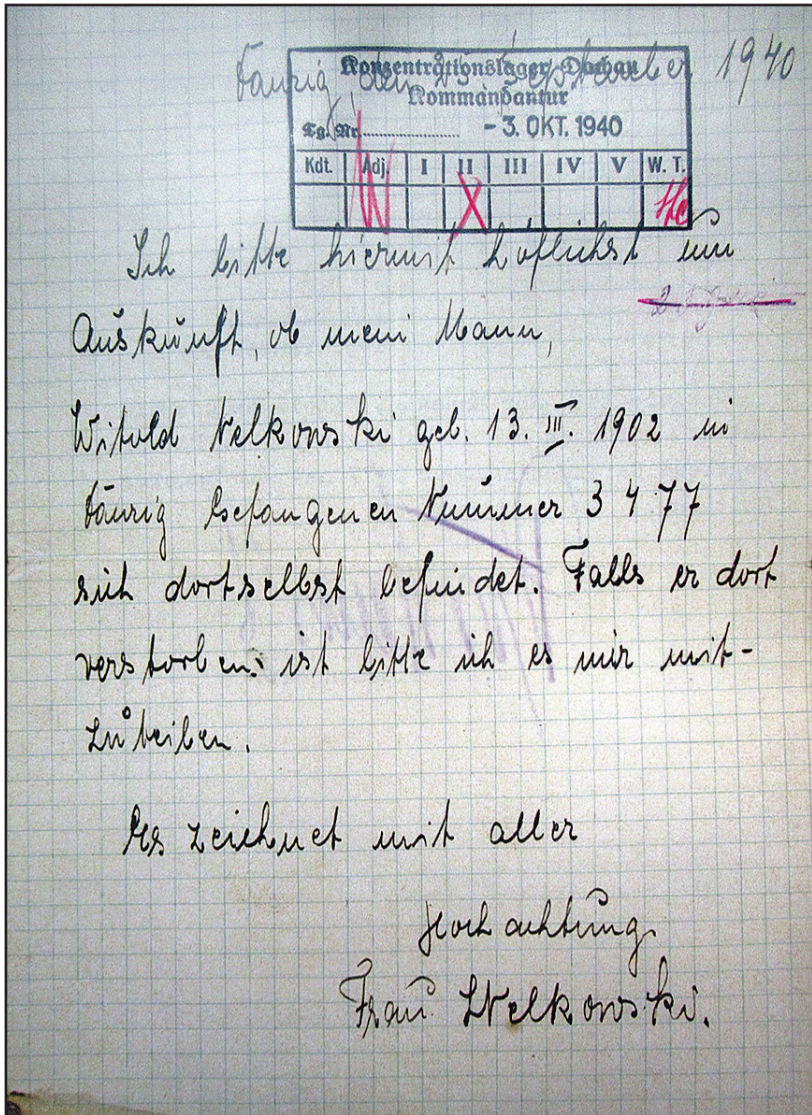 Danzig, den September 1940
Konzentrationslager Dachau
Kommandantur
Tg. Nr. - 3. OKT. 1940
Kdt. Adj. I II III IV V W. T.
X
Ich bitte hiermit höflichst um
Auskunft, ob mein Mann,
Witold Nelkowski geb. 13. III. 1902 in
Danzig Gefangenen Nummer 3 4 77
sich dortselbst befindet. Falls er dort
verstorben ist bitte ich es mir mit-
zuteilen.
Es zeichnet mit aller
Hochachtung
Frau Nelkowski.